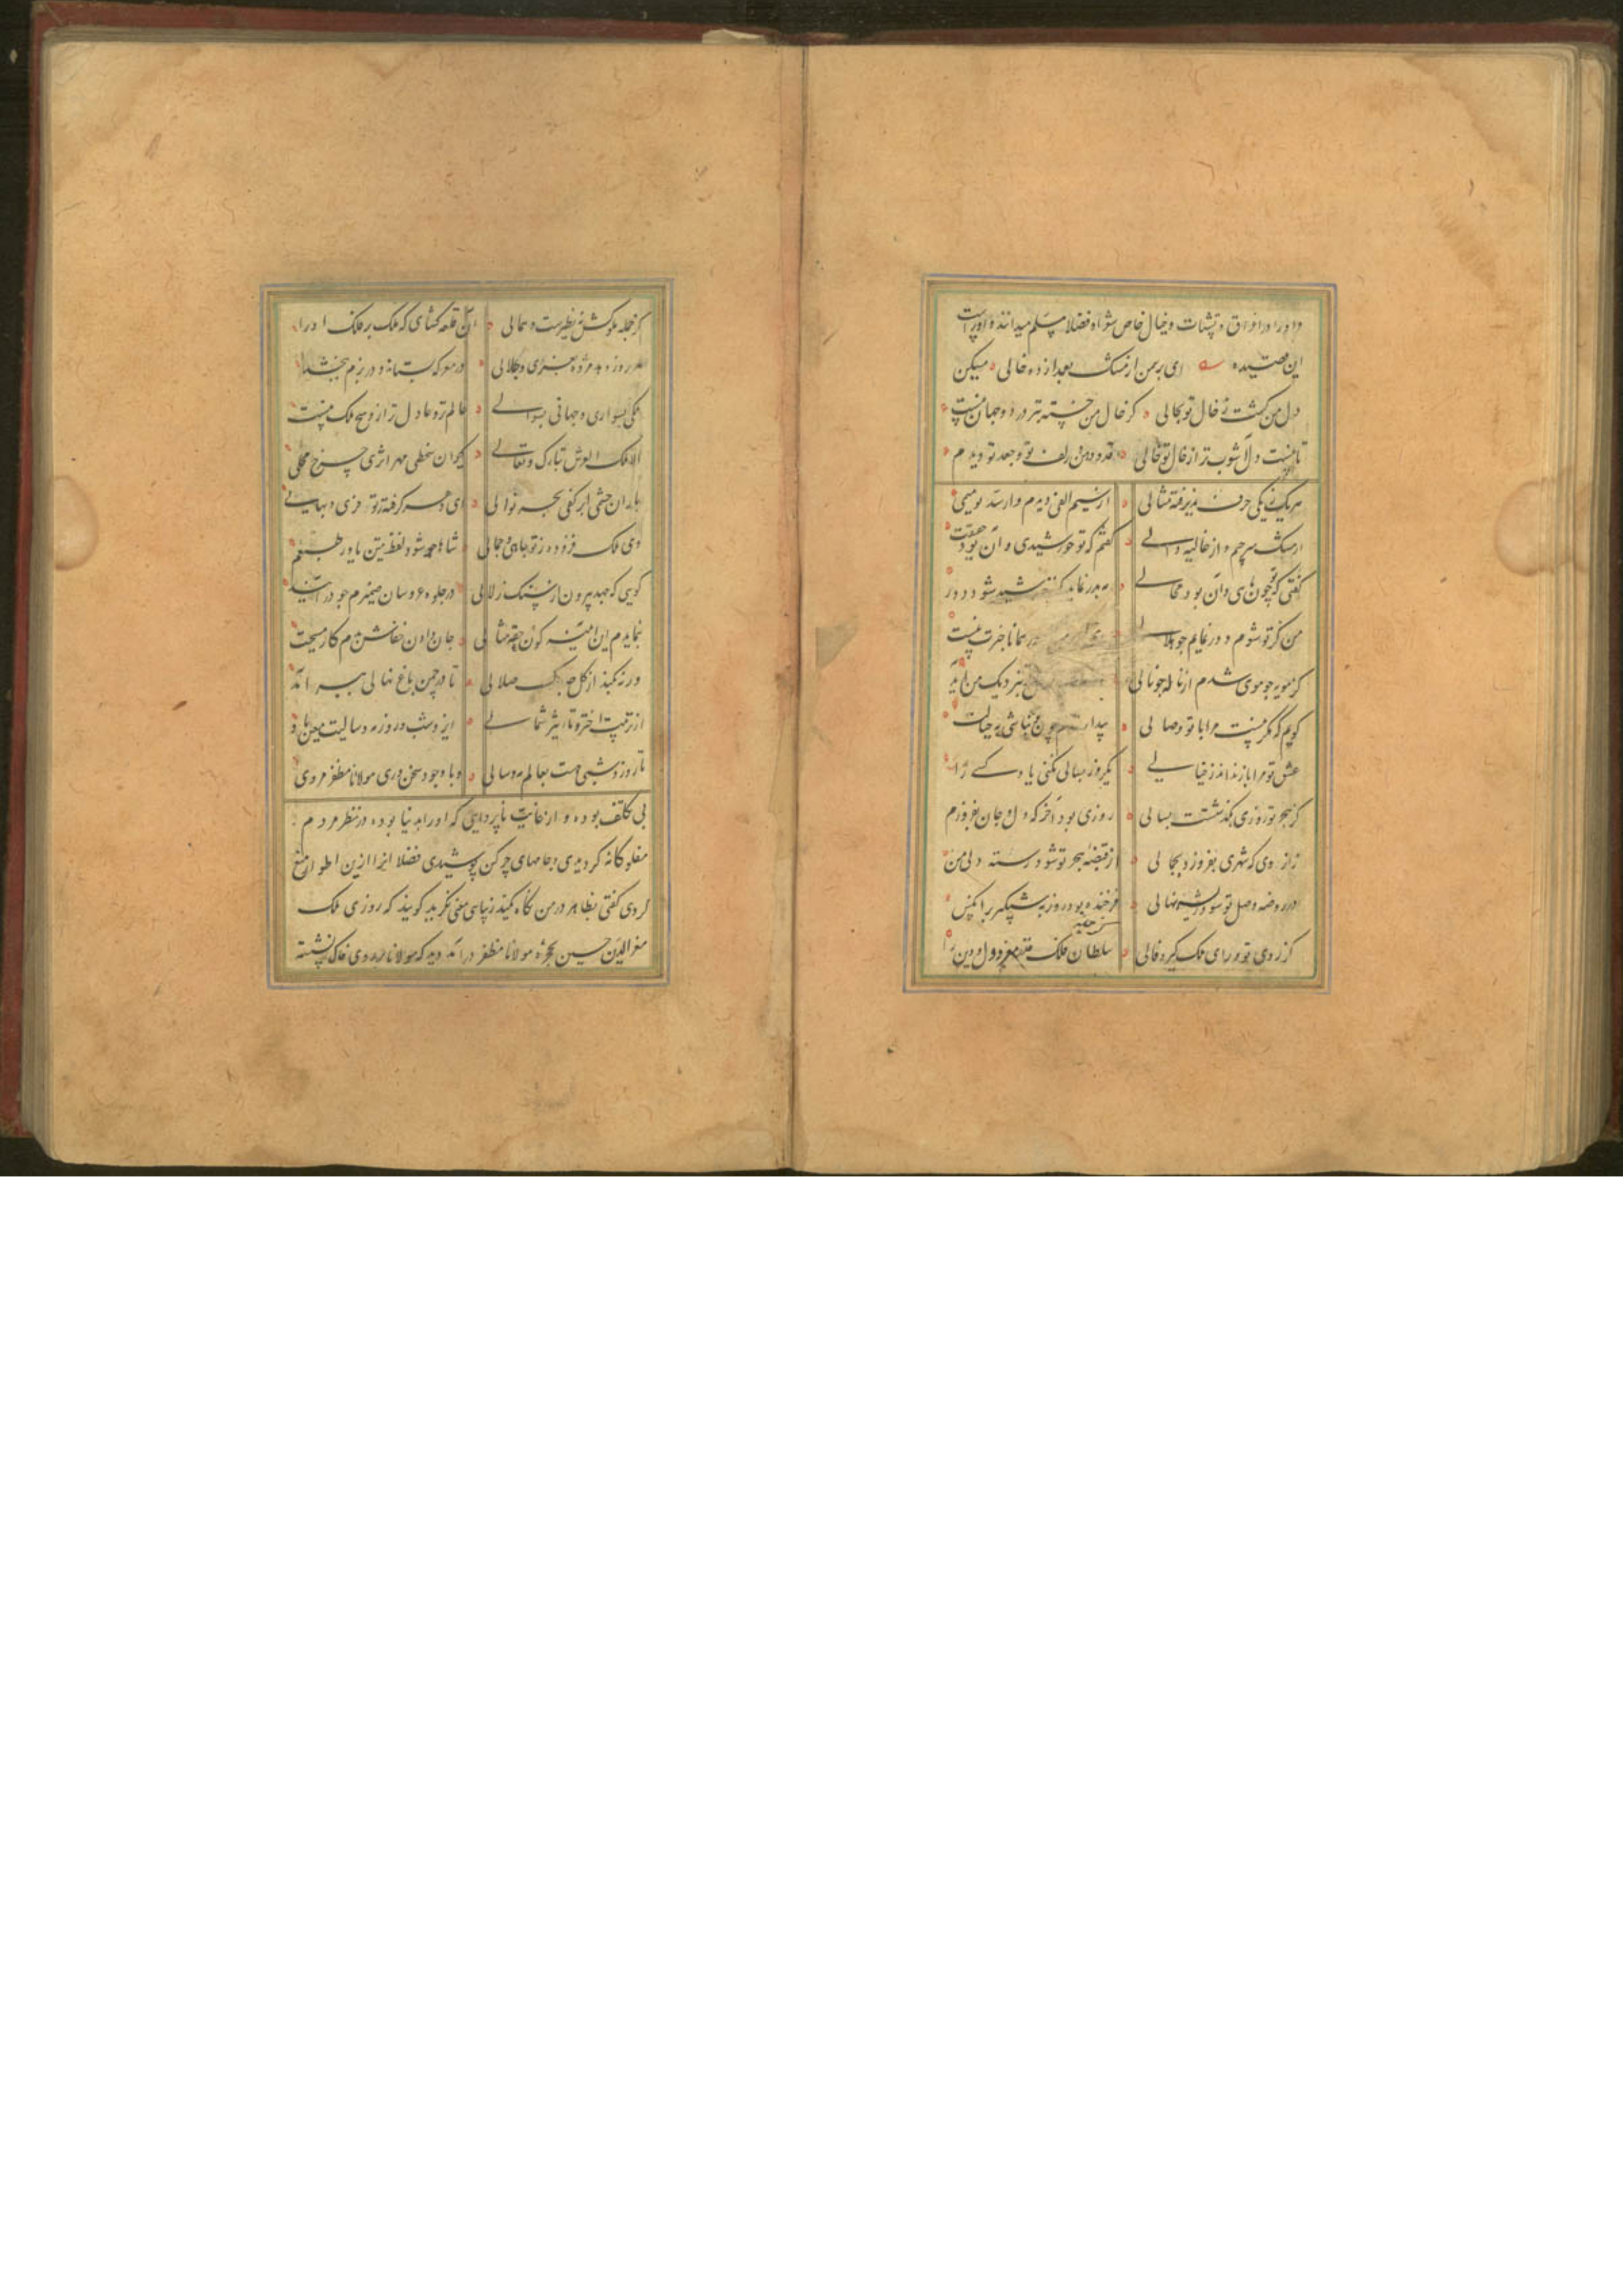 و او را در اغراق و تشبیهات و خیال خاص شعراء و فضلا مسلم میدانند و او راست
این قصیده ای بر من از مشک بعمدا زده خالی مسکین
دل من گشت ز خال تو بحالی کز خال من خسته بتر در دو جهان نیست
تا نیست دل آشوب تر از خال تو خالی قد و دهن و زلف تو و جعد تو دیدم
هر یک ز یکی حرف پذیرفته مثالی از سیم الفی دیدم و از بسد میمی
از مشک سر جیم و از غالیه دالی گفتم که تو خورشیدی و آن بود حقیقت
گفتی که تو چون مائی و آن بود محالی
من کز تو شوم دور نمایم چو هلالی
کز مویه چو موی شدم از ناله چو نالی نزدیک من آید
گویم که مگر نیست مرا با تو وصالی
عشق تو مرا باز نداند ز خیالی یکروز بسالی نکنی یاد کسی را
کز هجر تو روزی بگذشتست بسالی روزی بود آخر که دل و جان بفروزم
زان روی که شهری بفروزد بجمالی از قبضه هجر تو شود رسته دل من
در روضه وصل تو شود رسته نهالی فرخنده بود روز به شبگیر بر آنکس
کز روی تو و رای ملک گیرد فالی سلطان ملک مقدم معز دول و دین
کز جمله ملوکش نه نظیرست و همالی آن قلعه گشای که ملک بر فلک او را
هر روز دهد مژده بنری و جلالی در معرکه بستاند و در بزم ببخشد
ملکی بسواری و جهانی بسوالی عالم تر و عادل تر ازو هیچ ملک نیست
الا ملک العرش تبارک و تعالی کیوان سخطی مهر اثری چرخ محلی
باران حشمی ابر کفی بحر نوالی ای دهر گرفته ز تو فری و بهایی
وی ملک فزوده ز تو جاهی و جمالی شاها چو شود لفظ متین یاور طبعم
گویی که جهد بیرون از سنگ زلالی در جلوه عروسان ضمیرم چو در آیند
بنمایدم این آینه گون حقه مثالی جان دادن خفاش ز دم کار مسیحست
ورنه بکند از گل هر یک صلصالی تا در چمن باغ نهالی ببر آید
از تربیت اختر و تاثیر شمالی ایزد شب و روز و مه و سالت معین باد
تا روز و شبی هست بعالم مه و سالی و با وجود سخن وری مولانا مظفر مردی
بی تکلف بوده و از غایت ناپروایی که او را بدنیا بوده در نظر مردم
مفلوکانه گردیدی و جامهای چرکن پوشیدی فضلا او را ازین اطوار منع
کردی گفتی بظاهر در من نگاه مکنید زیبایی معنی نگرید گویند که روزی ملک
معز الدین حسین بحجره مولانا مظفر در آمد دید که مولانا بر روی خاک نشسته